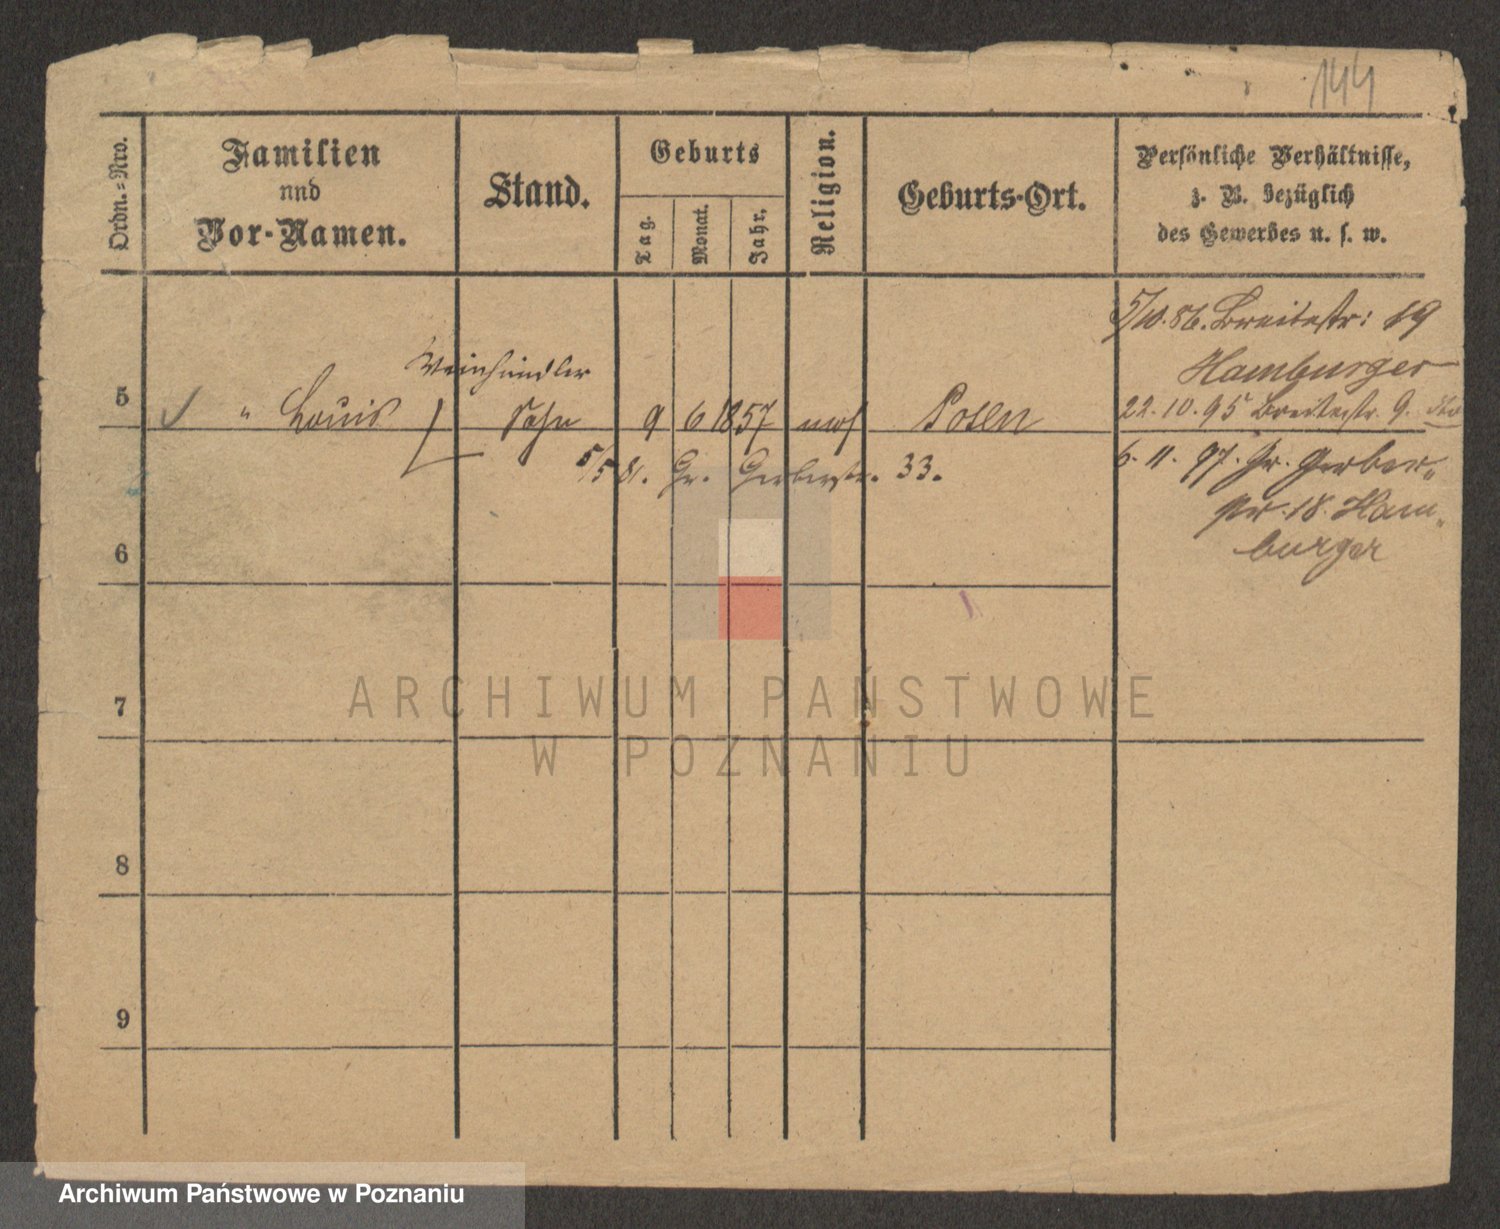 144
Ordn.=Nro.
Familien
und
Vor-Namen.
Stand.
Geburts
Tag.
Monat.
Jahr.
Religion.
Geburts-Ort.
Persönliche Verhältnisse,
z. B. bezüglich
des Gewerbes u. s. w.
5/10. 86. Breitestr: 19
Hamburger
Weinhändler
5 " Louis Sohn 9 6 1857 mos Posen
22. 10. 95 Breitestr. 9.
5/5 81. Gr. Gerberstr. 33.
6. 11. 97. Gr. Gerber-
str. 18. Ham-
burger
6
7
8
9
ARCHIWUM PAŃSTWOWE
W POZNANIU
Archiwum Państwowe w Poznaniu